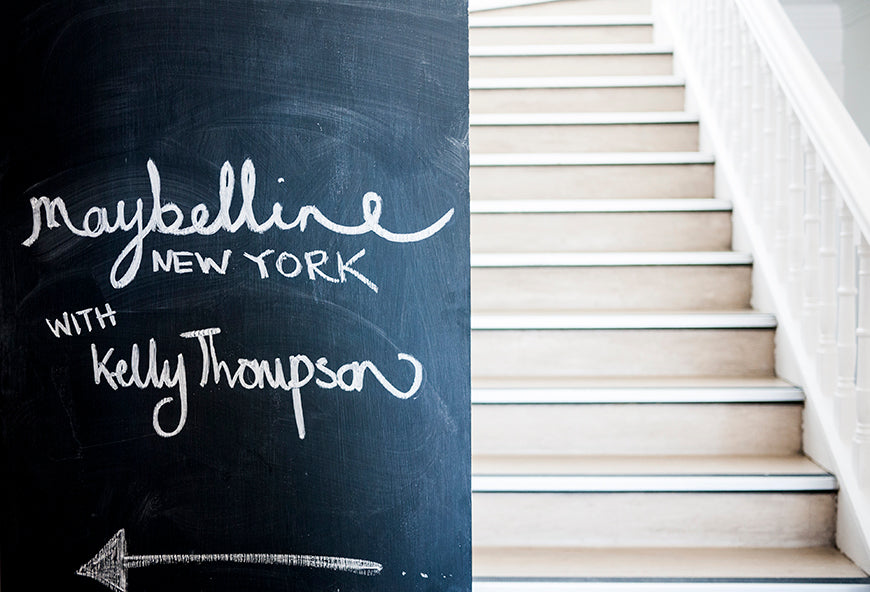 maybelline
NEW YORK
WITH
Kelly Thompson